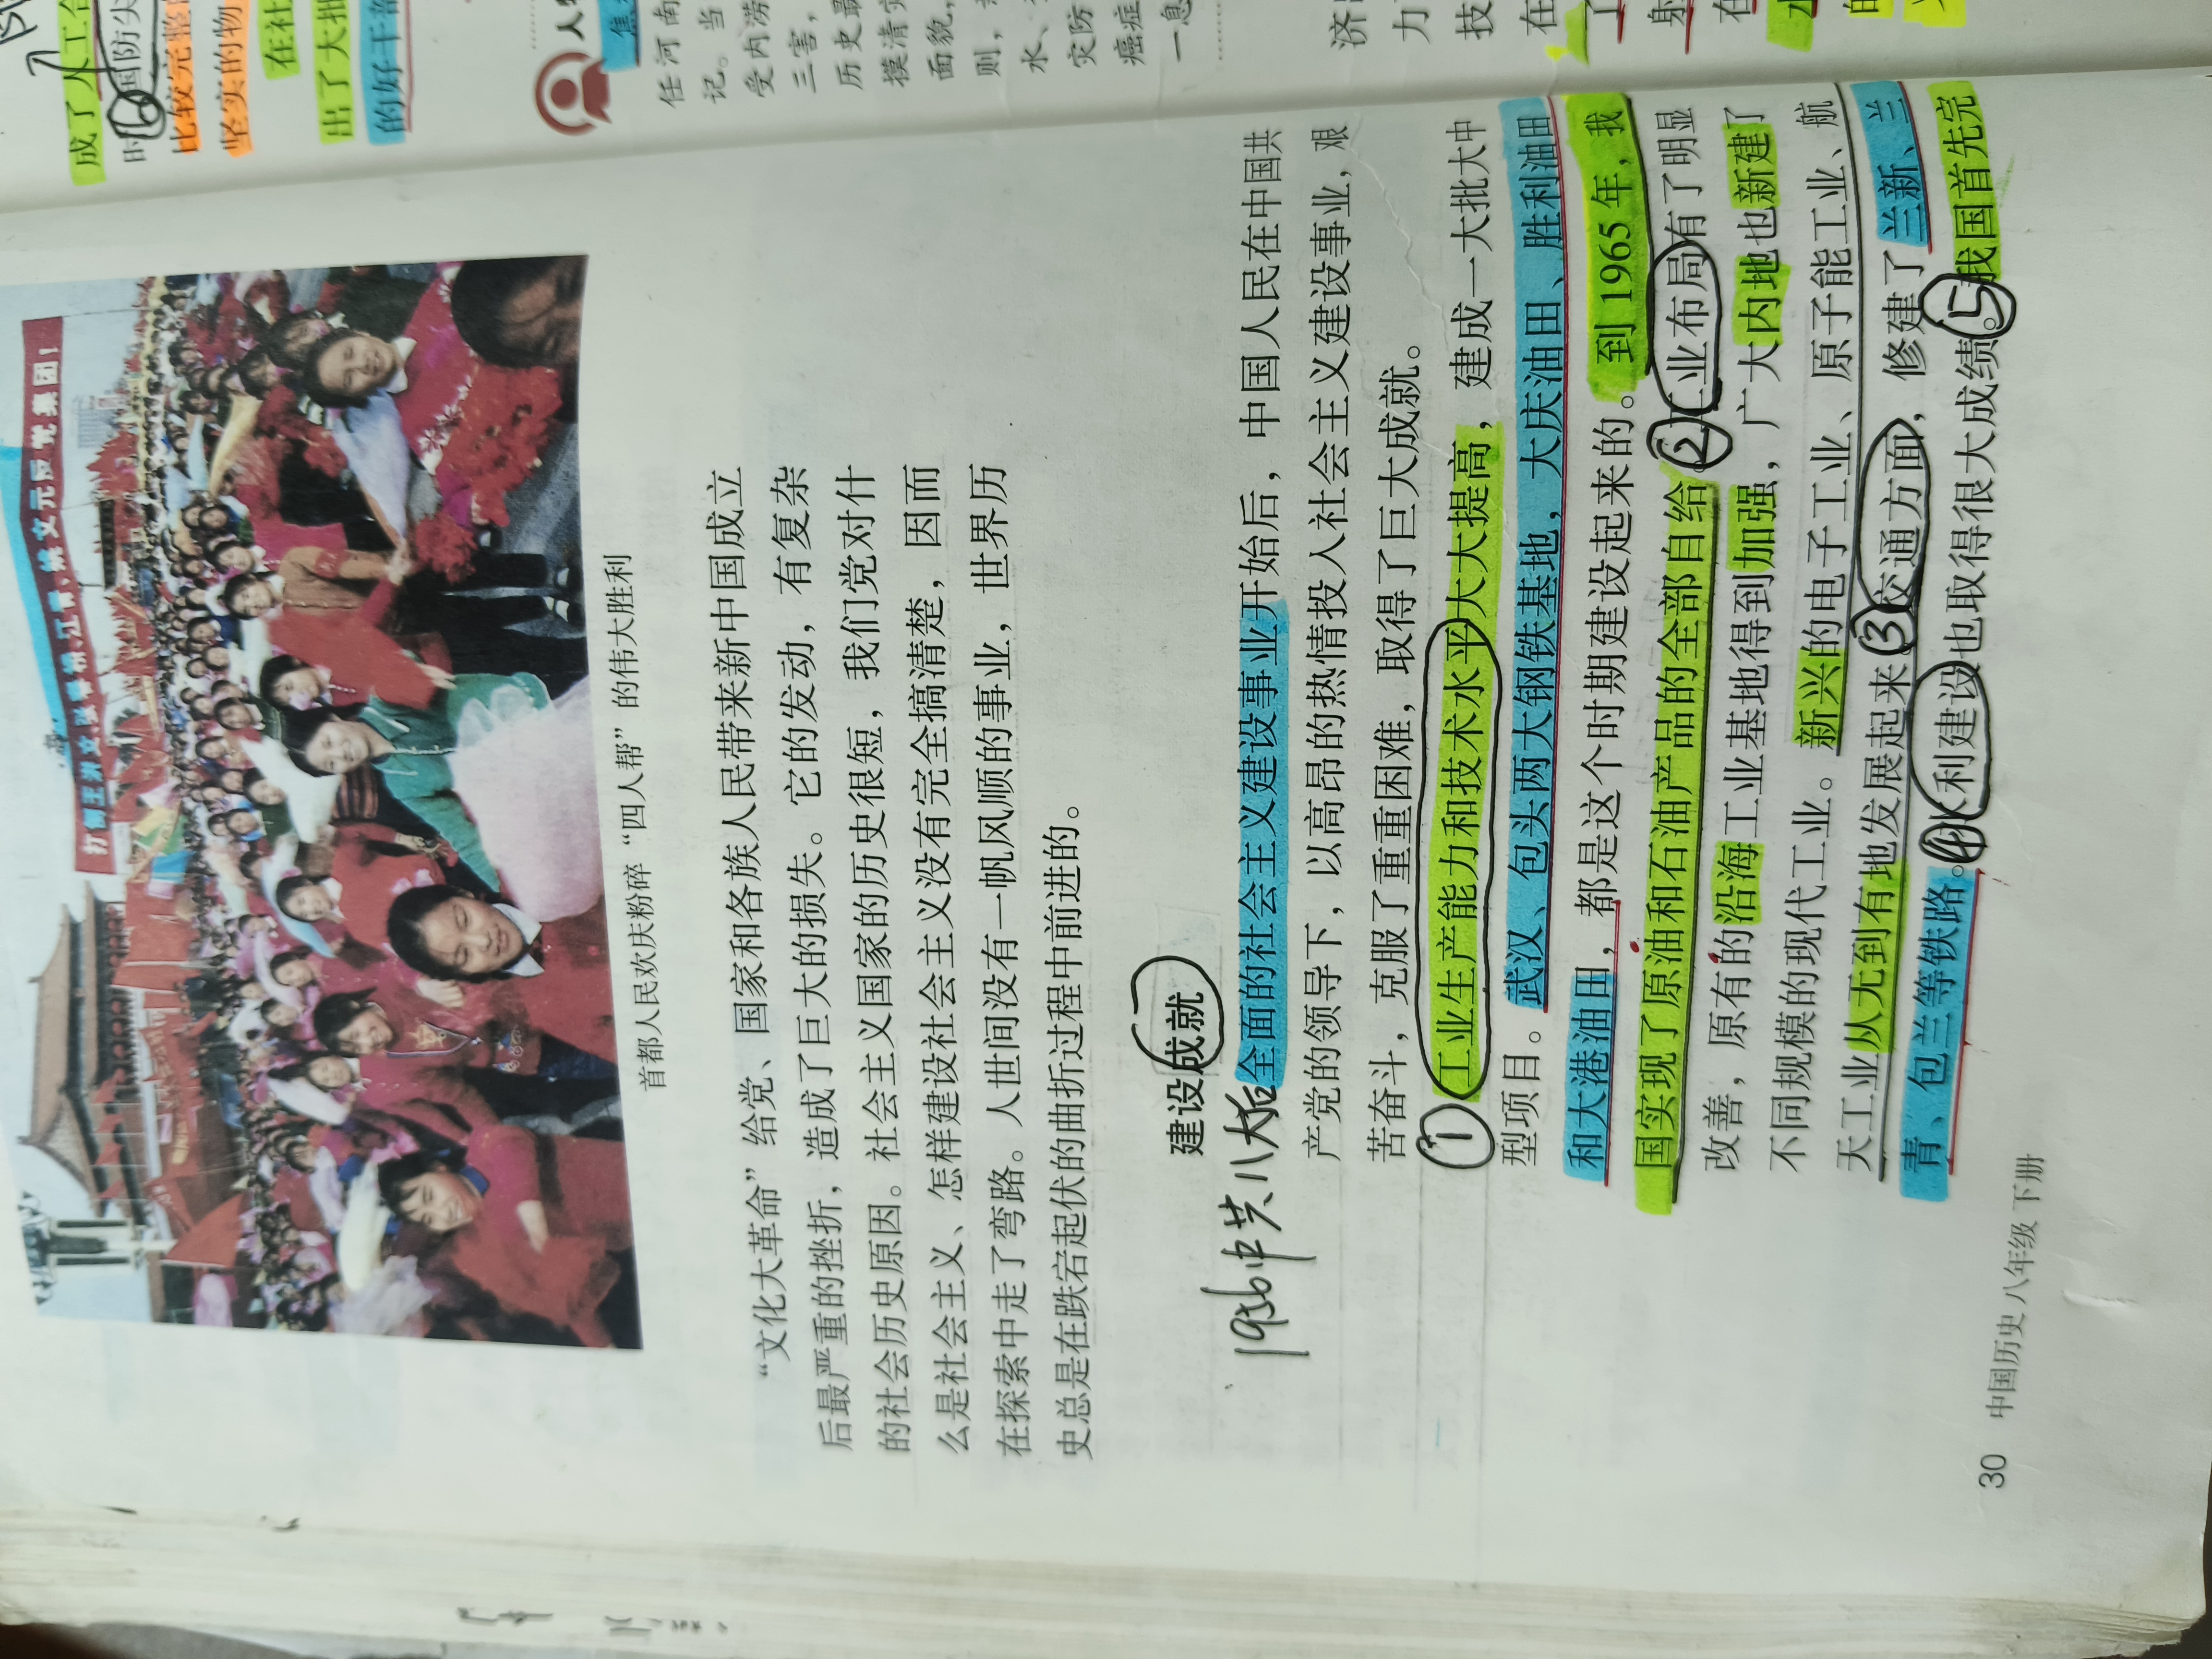 打倒王洪文、张春桥、江青、姚文元反党集团！
首都人民欢庆粉碎“四人帮”的伟大胜利
“文化大革命”给党、国家和各族人民带来新中国成立
后最严重的挫折，造成了巨大的损失。它的发动，有复杂
的社会历史原因。社会主义国家的历史很短，我们党对什
么是社会主义、怎样建设社会主义没有完全搞清楚，因而
在探索中走了弯路。人世间没有一帆风顺的事业，世界历
史总是在跌宕起伏的曲折过程中前进的。
建设成就
1956中共八大后
全面的社会主义建设事业开始后，中国人民在中国共
产党的领导下，以高昂的热情投入社会主义建设事业，艰
苦奋斗，克服了重重困难，取得了巨大成就。
①工业生产能力和技术水平大大提高，建成一大批大中
型项目。武汉、包头两大钢铁基地，大庆油田、胜利油田
和大港油田，都是这个时期建设起来的。到1965年，我
国实现了原油和石油产品的全部自给。②工业布局有了明显
改善，原有的沿海工业基地得到加强，广大内地也新建了
不同规模的现代工业。新兴的电子工业、原子能工业、航
天工业从无到有地发展起来。③交通方面，修建了兰新、兰
青、包兰等铁路。④水利建设也取得很大成绩。⑤我国首先完
30 中国历史 八年级 下册
成了人工合
时⑥国防尖
比较完整的
坚实的物
在社
出了大批
的好干部
人物
焦
任河南
记。当
受内涝
三害，
历史最
摸清
面貌，
则，
水、
灾防
癌症
一息
济
力
技
在
了
射
在
水
的